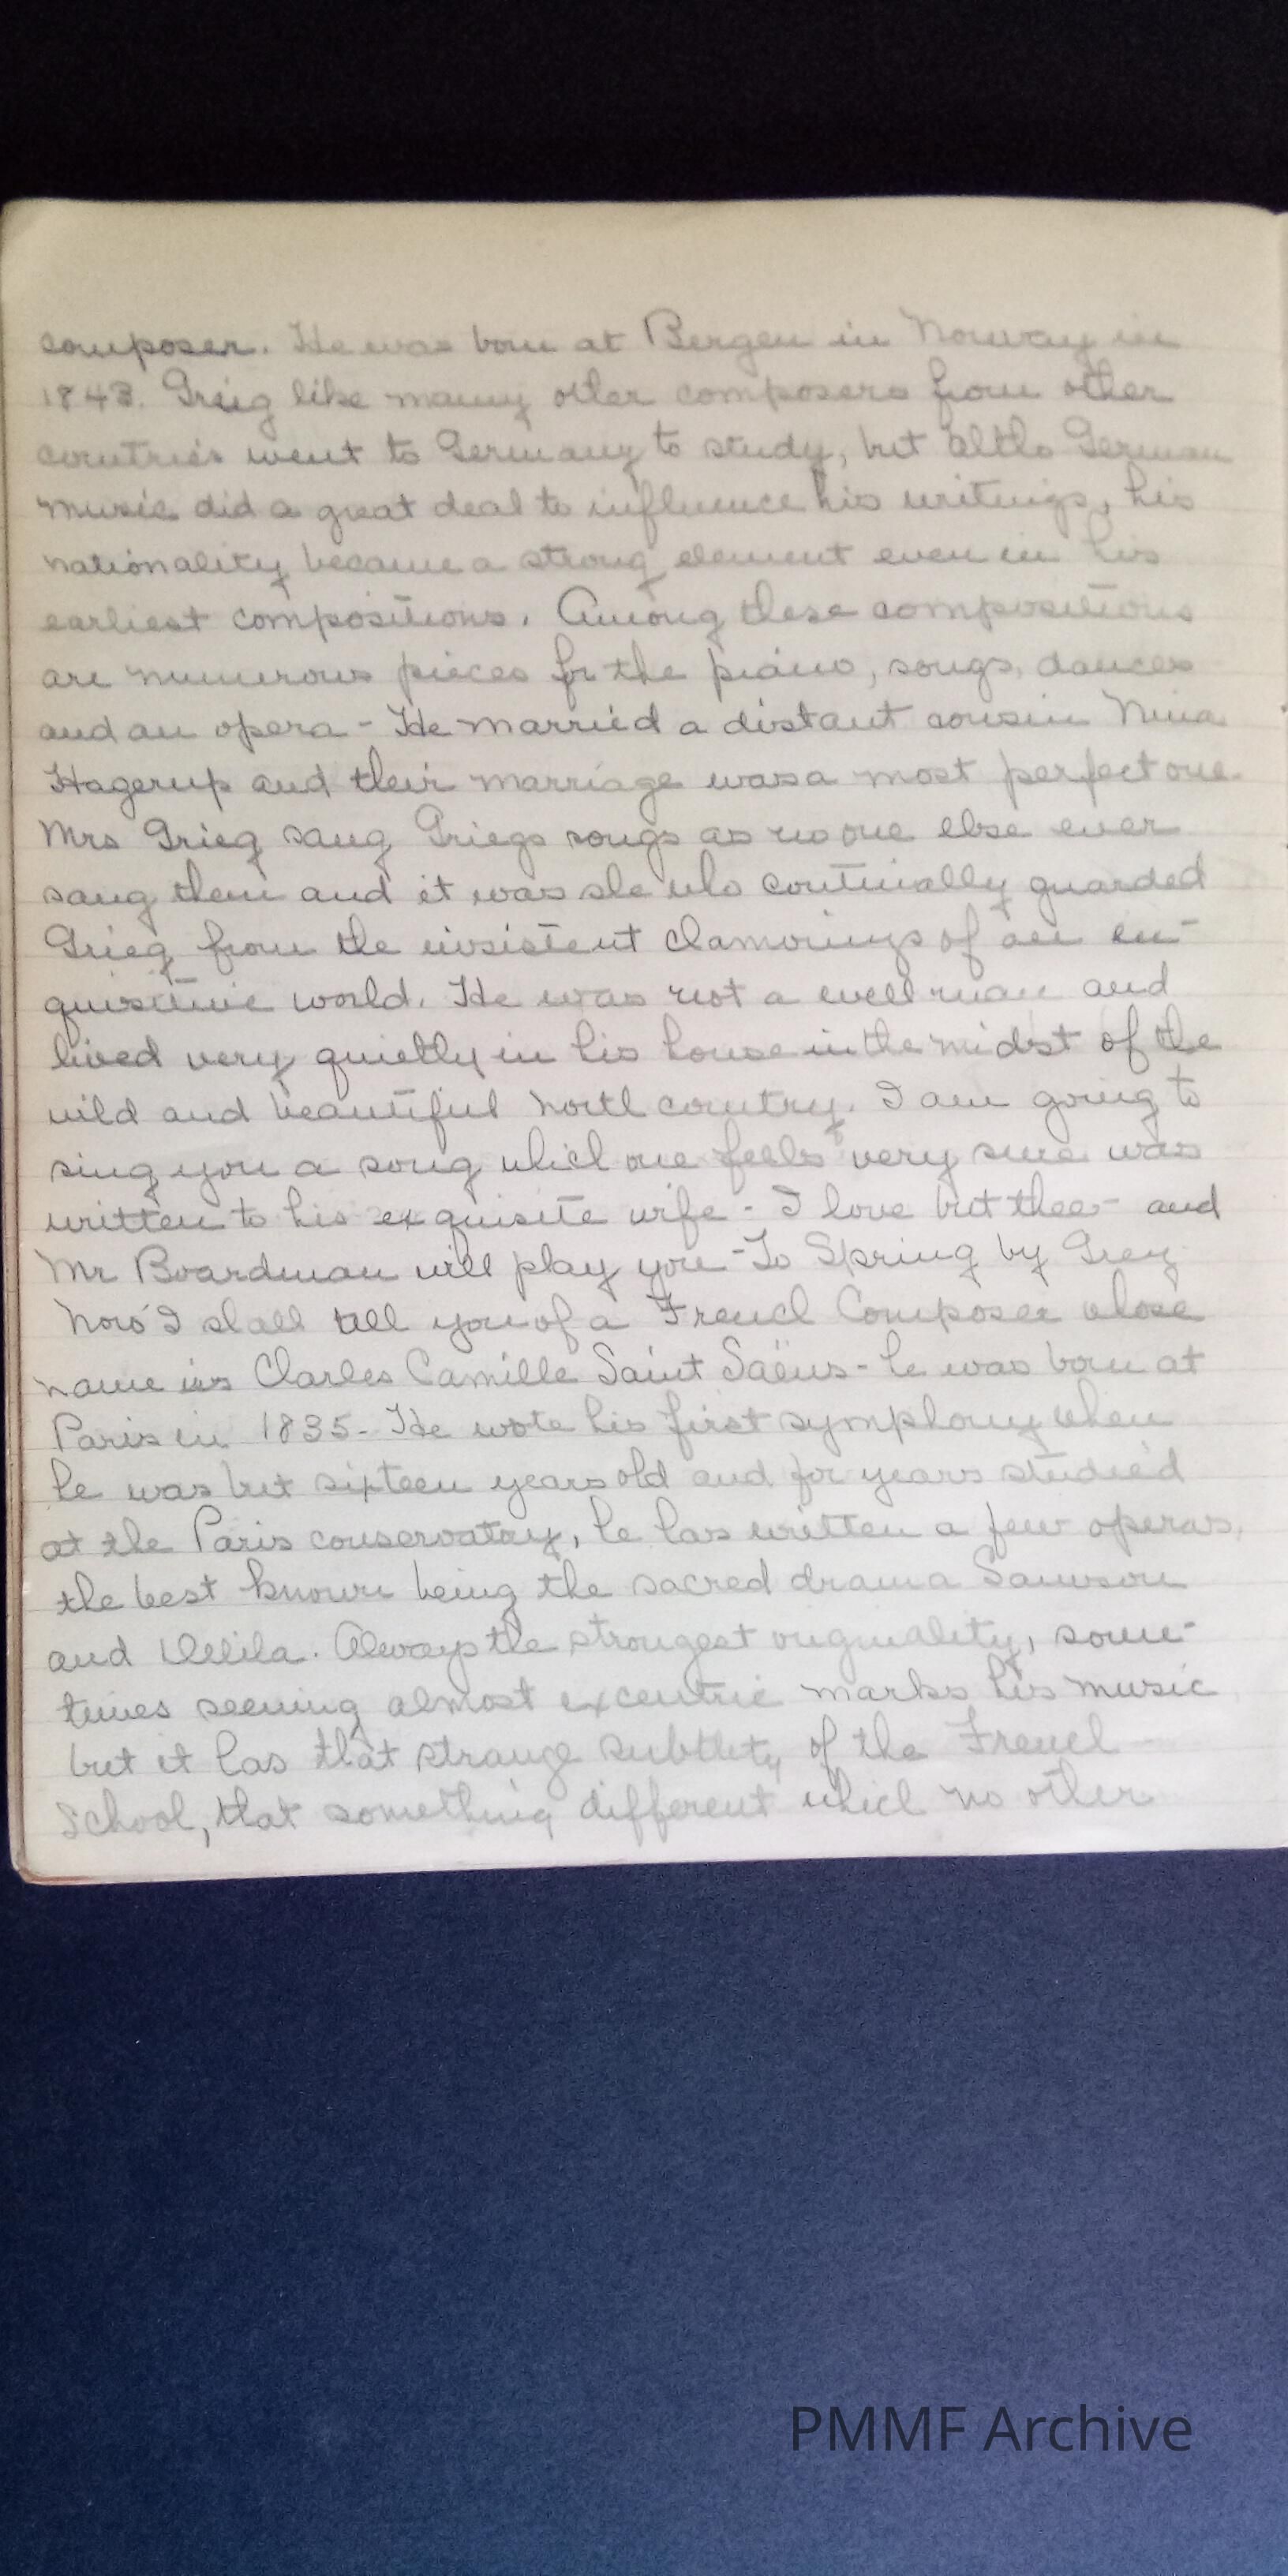 composer. He was born at Bergen in Norway in
1843. Grieg like many other composers from other
countries went to Germany to study, but altho German
music did a great deal to influence his writings, his
nationality became a strong element even in his
earliest compositions. Among these compositions
are numerous pieces for the piano, songs, dances
and an opera - He married a distant cousin Nina
Hagerup and their marriage was a most perfect one.
Mrs Grieg sang Griegs songs as no one else ever
sang them and it was she who continually guarded
Grieg from the insistent clamorings of an en-
quisitive world. He was not a well man and
lived very quietly in his house in the midst of the
wild and beautiful north country. I am going to
sing you a song which one feels very sure was
written to his exquisite wife - I love but thee - and
Mr Boardman will play you - To Spring by Greg
Now I shall tell you of a French Composer whose
name is Charles Camille Saint Saëns - he was born at
Paris in 1835 - He wrote his first symphony when
he was but sixteen years old and for years studied
at the Paris conservatory, he has written a few operas,
the best known being the sacred drama Samson
and Delila. Always the strongest originality, some-
times seeming almost excentric marks his music
but it has that strange subtlety of the French
School, that something different which no other
PMMF Archive